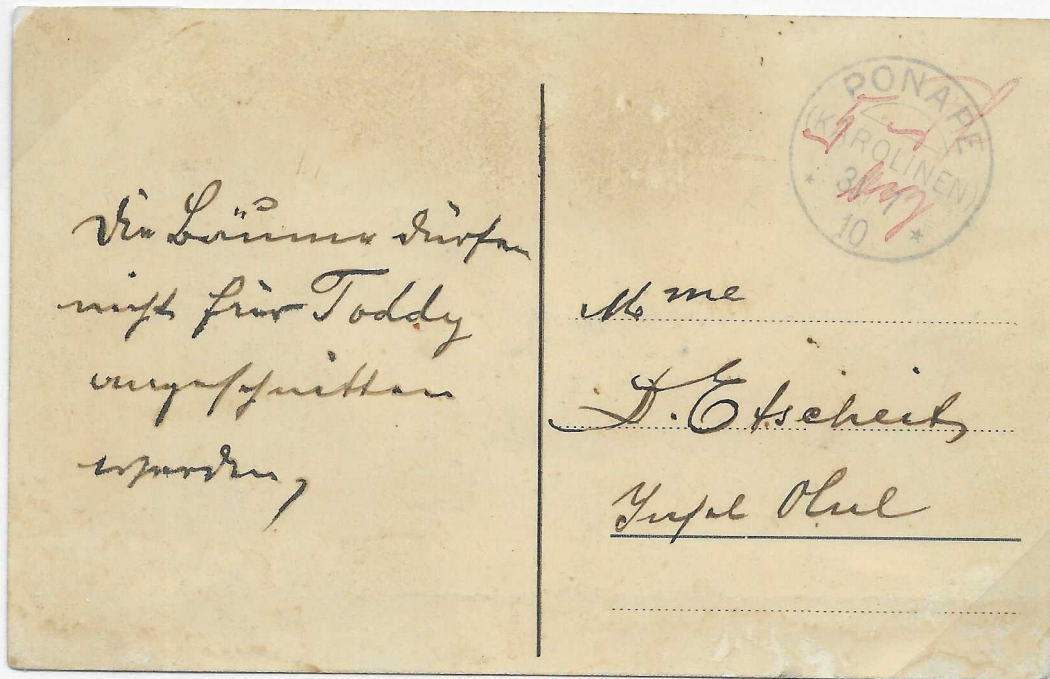 Die Bäume dürfen
nicht für Toddy
angeschnitten
werden,
PONAPE
(KAROLINEN)
10
Mme
D. Etscheit,
Insel Olul